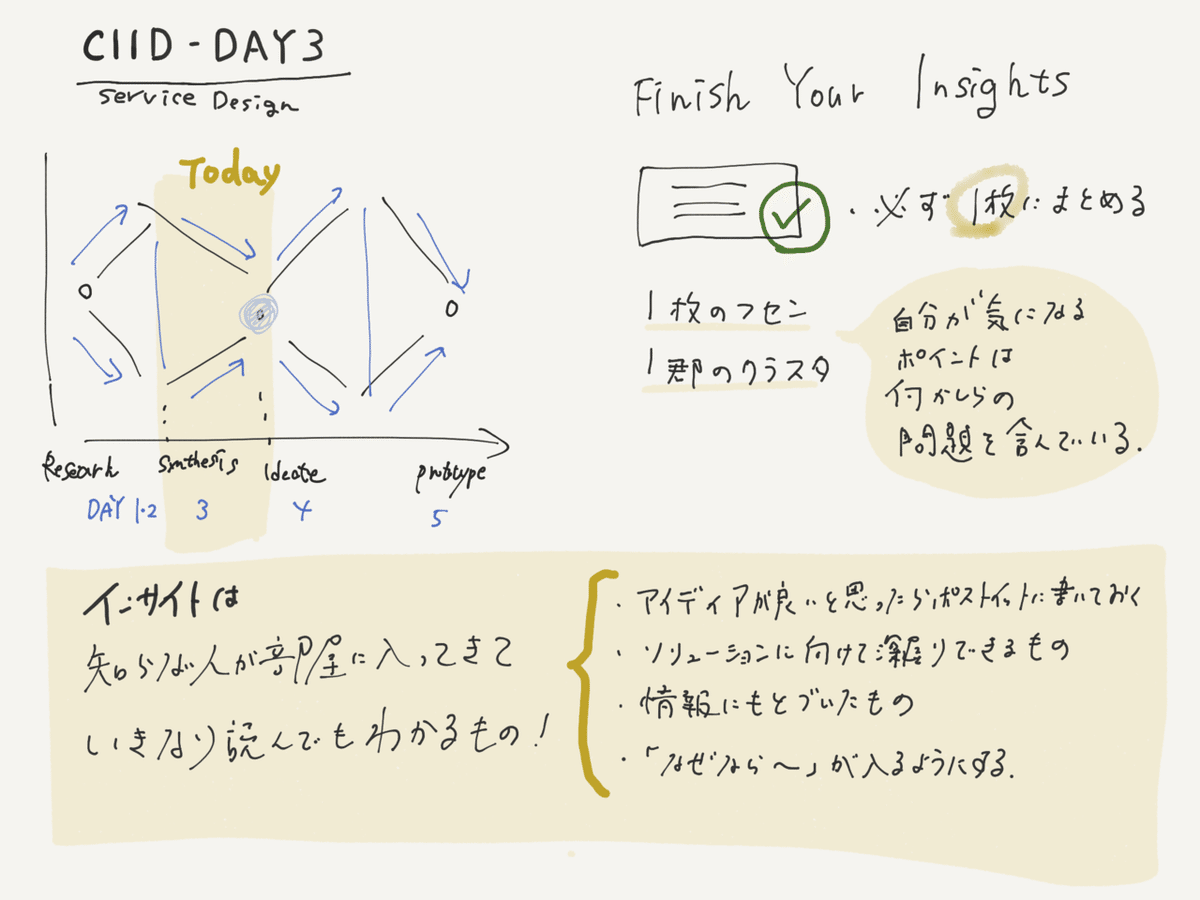 CIID - DAY3
Service Design
Today
Research
Synthesis
Ideate
Prototype
DAY 1・2
3
4
5
Finish Your Insights
・必ず1枚にまとめる
1枚のフセン
1郡のクラスタ
自分が気になる
ポイントは
何かしらの
問題を含んでいる.
インサイトは
知らない人が部屋に入ってきて
いきなり読んでもわかるもの!
・アイディアが良いと思ったらポストイットに書いておく
・ソリューションに向けて深掘りできるもの
・情報にもとづいたもの
・「なぜなら〜」が入るようにする.